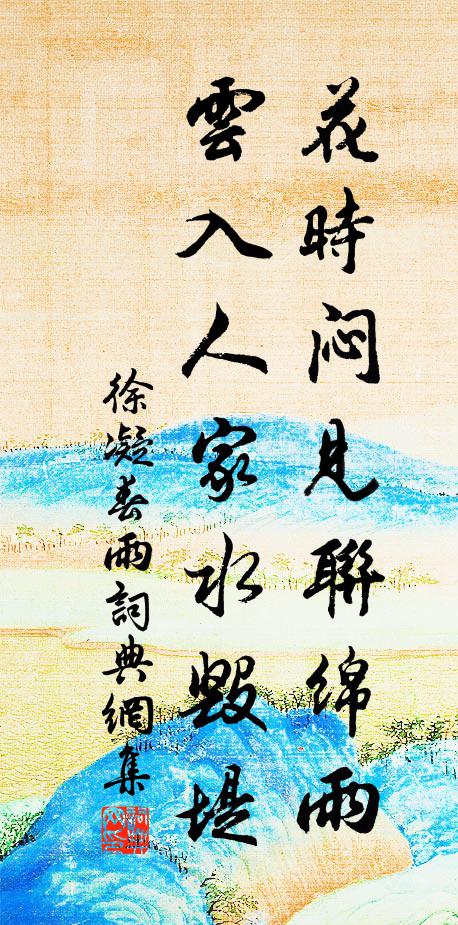 花時闷見聯綿雨
雲入人家水毀堤
徐凝春雨詞典網集